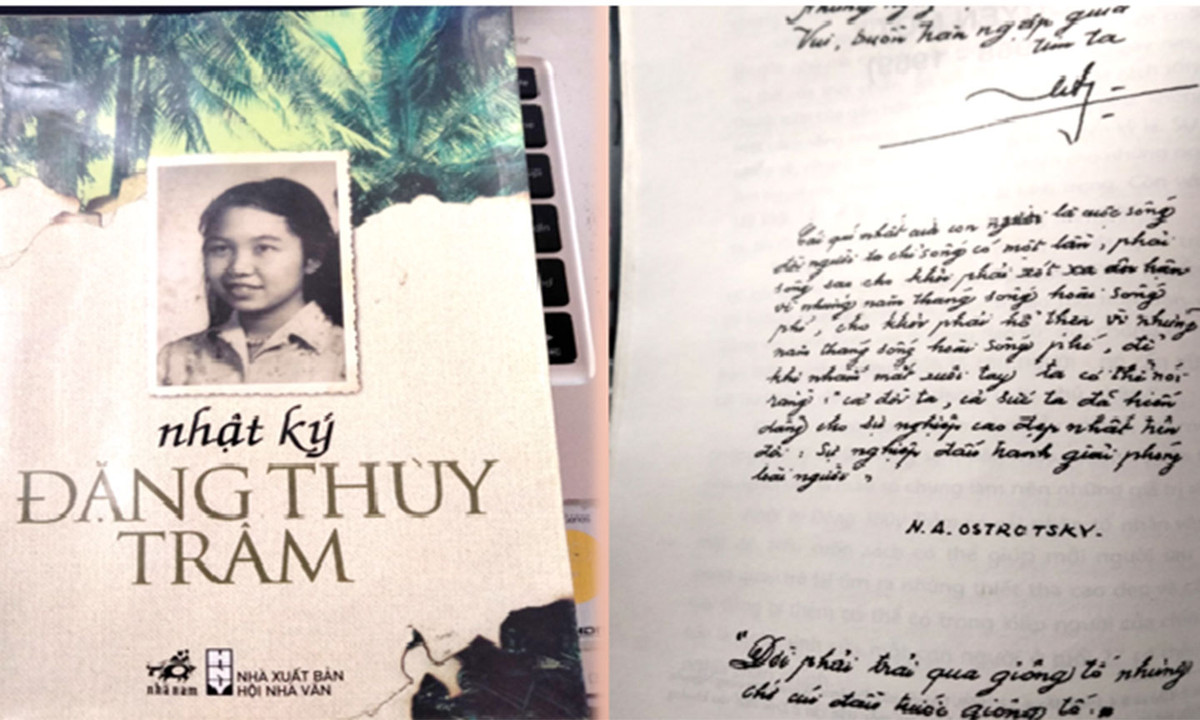 nhật ký
ĐẶNG THÙY
TRÂM
nhã nam
NHÀ XUẤT BẢN
HỘI NHÀ VĂN
Vui, buồn hạn ngập qua
tim ta
Cái quí nhất của con người là cuộc sống
đời người ta chỉ sống có một lần, phải
sống sao cho khỏi phải xót xa ân hận
vì những năm tháng sống hoài sống
phí, cho khỏi phải hổ thẹn vì những
năm tháng sống hoài sống phí, để
khi nhắm mắt xuôi tay ta có thể nói
rằng: "cả đời ta, cả sức ta đã hiến
dâng cho sự nghiệp cao đẹp nhất trên
đời: Sự nghiệp đấu tranh giải phóng
loài người"
N.A. OSTROTSKY.
"Đời phải trải qua giông tố nhưng
chớ cúi đầu trước giông tố."